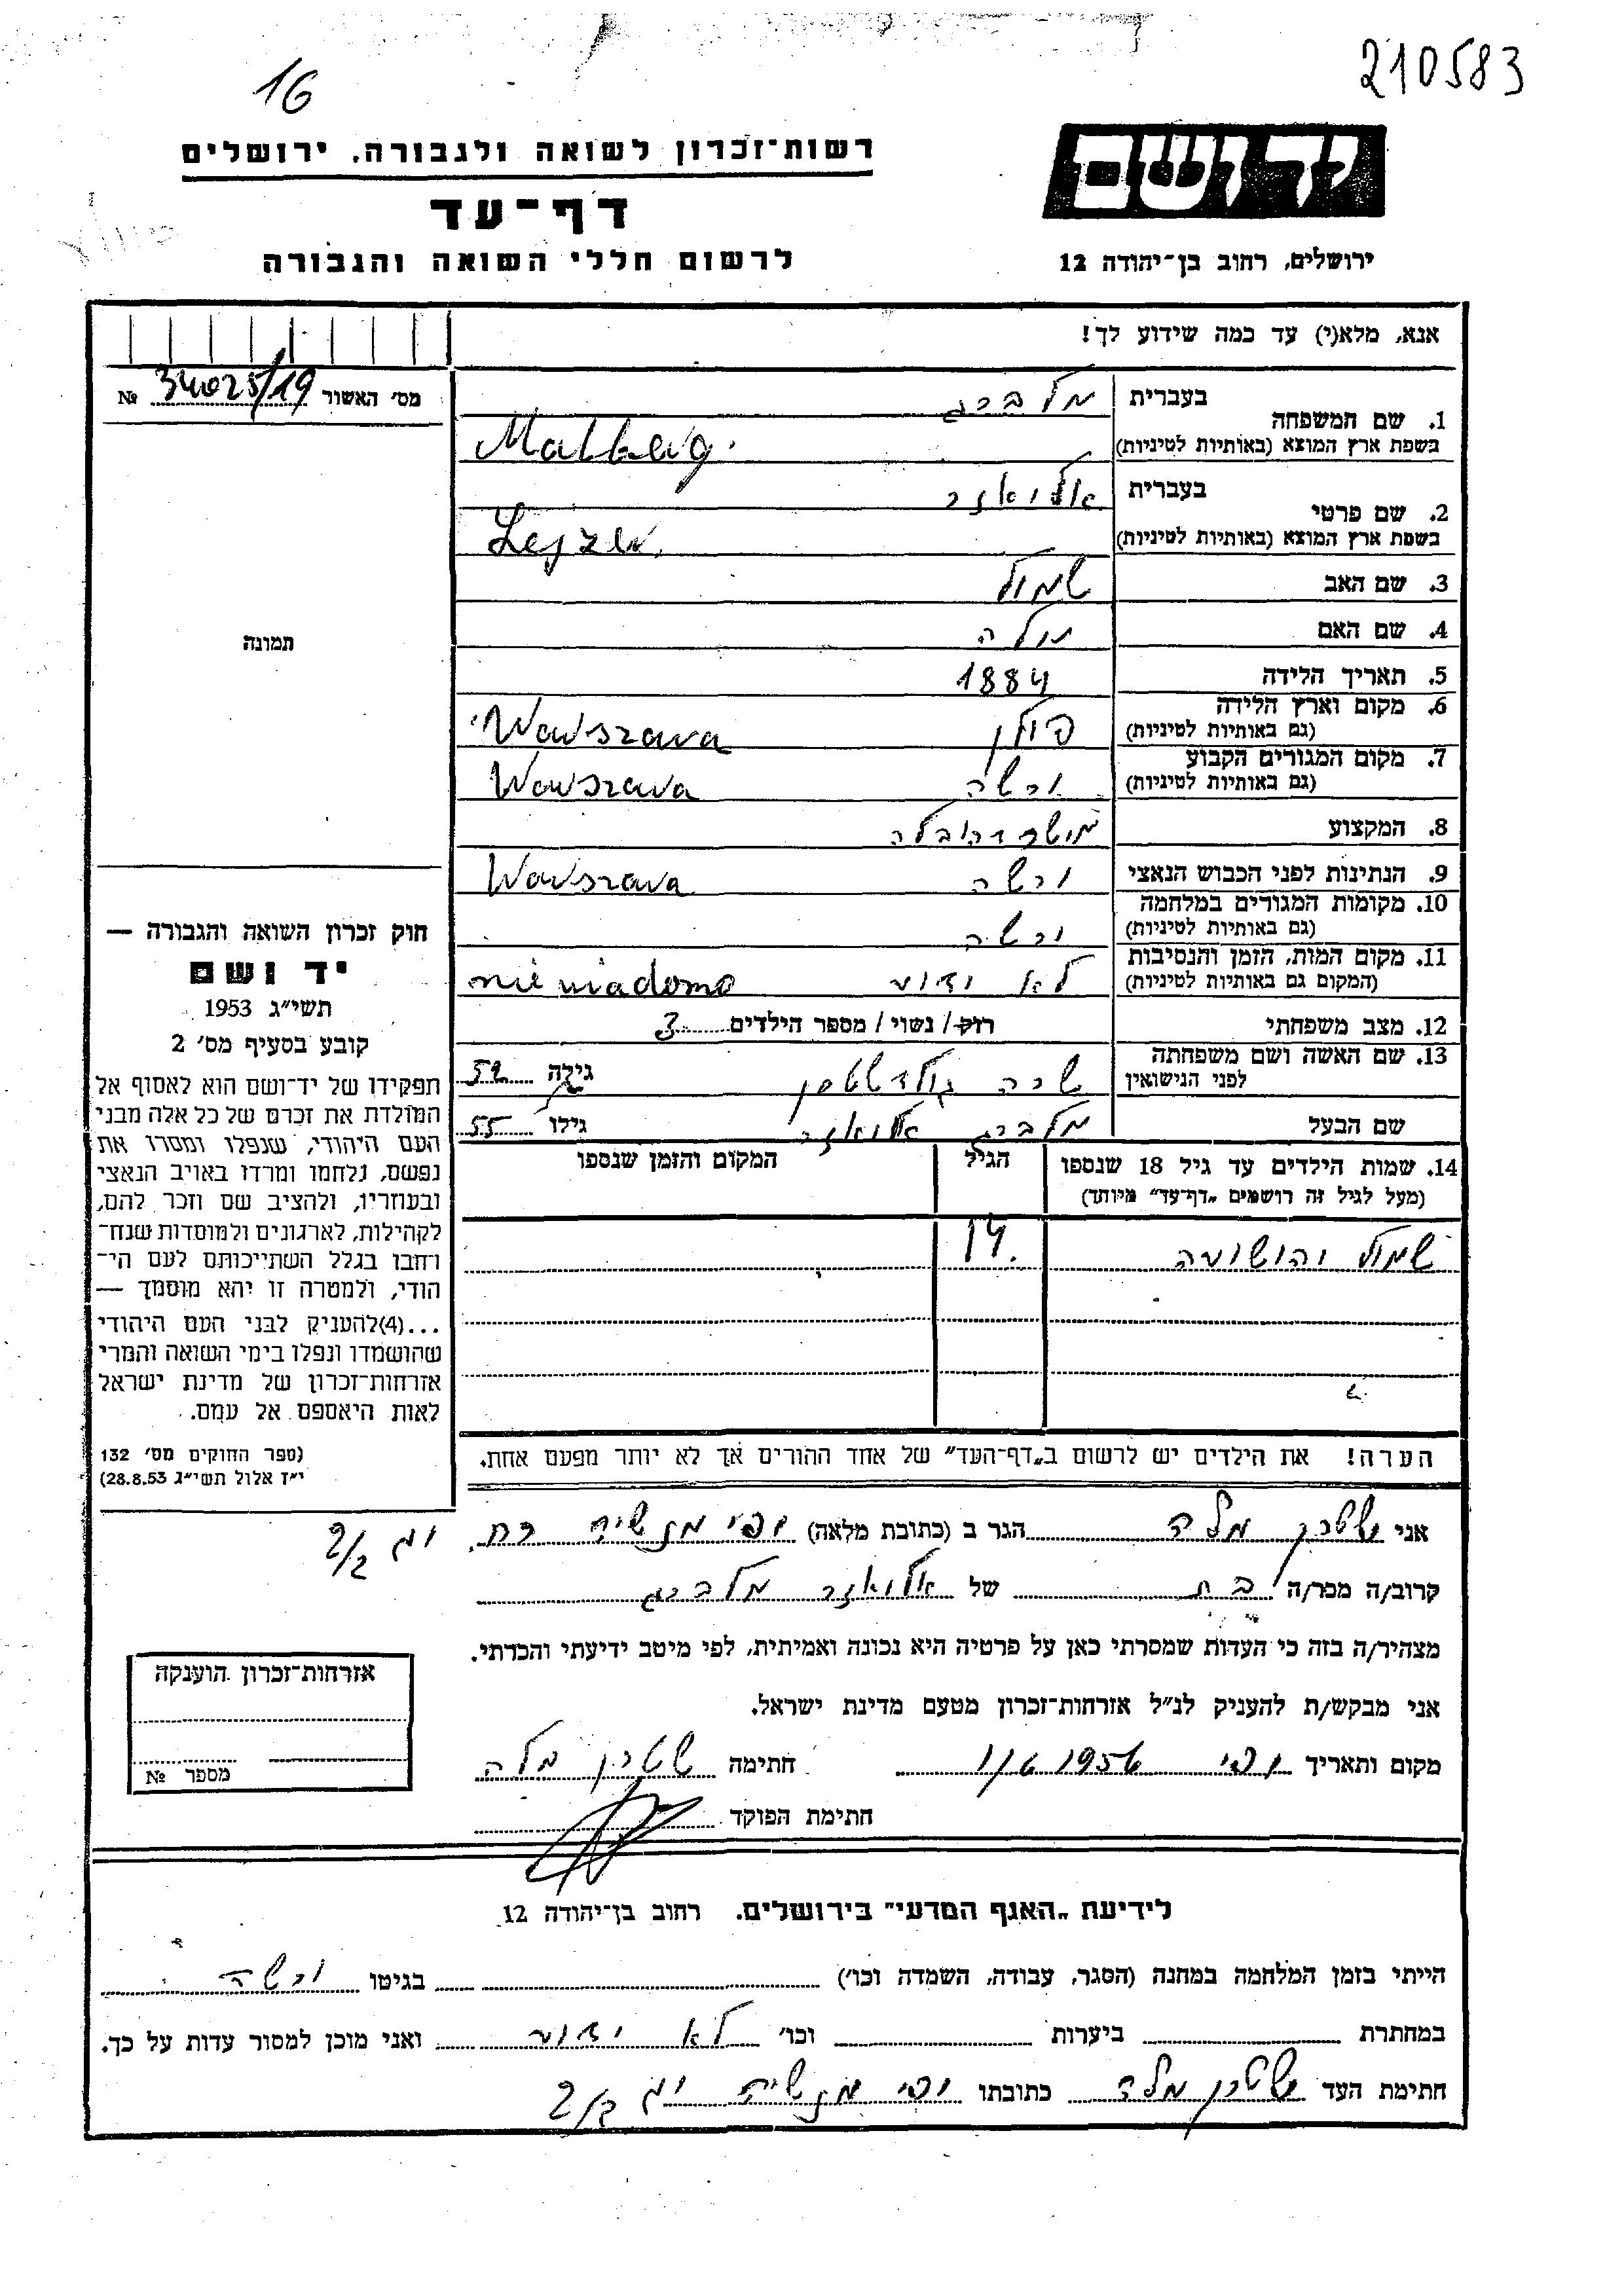 16
210583
יד ושם
רשות־זכרון לשואה ולגבורה, ירושלים
דף־עד
לרשום חללי השואה והגבורה
ירושלים, רחוב בן־יהודה 12
אנא, מלא(י) עד כמה שידוע לך!
מס׳ האשור 34025/19 №
תמונה
1. שם המשפחה בעברית מלברג
בשפת ארץ המוצא (באותיות לטיניות) Malberg.
2. שם פרטי בעברית אליאזר
בשפת ארץ המוצא (באותיות לטיניות) Lejzer.
3. שם האב שמול
4. שם האם מלה
5. תאריך הלידה 1884
6. מקום וארץ הלידה (גם באותיות לטיניות) פולן Warszawa
7. מקום המגורים הקבוע (גם באותיות לטיניות) ורשה Warszawa
8. המקצוע
9. הנתינות לפני הכבוש הנאצי ורשה Warszawa
10. מקומות המגורים במלחמה (גם באותיות לטיניות) ורשה
11. מקום המות, הזמן והנסיבות (המקום גם באותיות לטיניות) לא ידוע nie wiadomo
12. מצב משפחתי רוק/ נשוי/ מספר הילדים 3
13. שם האשה ושם משפחתה לפני הנישואין שרה גולדשטין גילה 52
שם הבעל מלברג אליאזר גילו 55
14. שמות הילדים עד גיל 18 שנספו
(מעל לגיל זה רושמים „דף־עד״ מיוחד)
הגיל
המקום והזמן שנספו
שמול 14
הערה! את הילדים יש לרשום ב„דף־העד״ של אחד ההורים אך לא יותר מפעם אחת.
חוק זכרון השואה והגבורה —
יד ושם
תשי״ג 1953
קובע בסעיף מס׳ 2
תפקידו של יד־ושם הוא לאסוף אל
המולדת את זכרם של כל אלה מבני
העם היהודי, שנפלו ומסרו את
נפשם, נלחמו ומרדו באויב הנאצי
ובעוזריו, ולהציב שם וזכר להם,
לקהילות, לארגונים ולמוסדות שנח־
רחבו בגלל השתייכותם לעם הי־
הודי, ולמטרה זו יהא מוסמך —
...(4)להעניק לבני העם היהודי
שהושמדו ונפלו בימי השואה והמרי
אזרחות־זכרון של מדינת ישראל
לאות היאספם אל עמם.
(ספר החוקים מס׳ 132
י״ז אלול תשי״ג 28.8.53)
אני שטרן מלה הגר ב (כתובת מלאה) יפו מנשיה רח
קרוב/ה מכר/ה בת של אליאזר מלברג
מצהיר/ה בזה כי העדות שמסרתי כאן על פרטיה היא נכונה ואמיתית, לפי מיטב ידיעתי והכרתי.
אני מבקש/ת להעניק לנ״ל אזרחות־זכרון מטעם מדינת ישראל.
מקום ותאריך יפו 1956 חתימה שטרן מלה
חתימת הפוקד
אזרחות־זכרון הוענקה
מספר №
לידיעת „האגף המדעי״ בירושלים. רחוב בן־יהודה 12
הייתי בזמן המלחמה במחנה (הסגר, עבודה, השמדה וכו׳) בגיטו ורשה
במחתרת ביערות וכו׳ לא ידוע ואני מוכן למסור עדות על כך.
חתימת העד שטרן מלה כתובתו יפו מנשיה